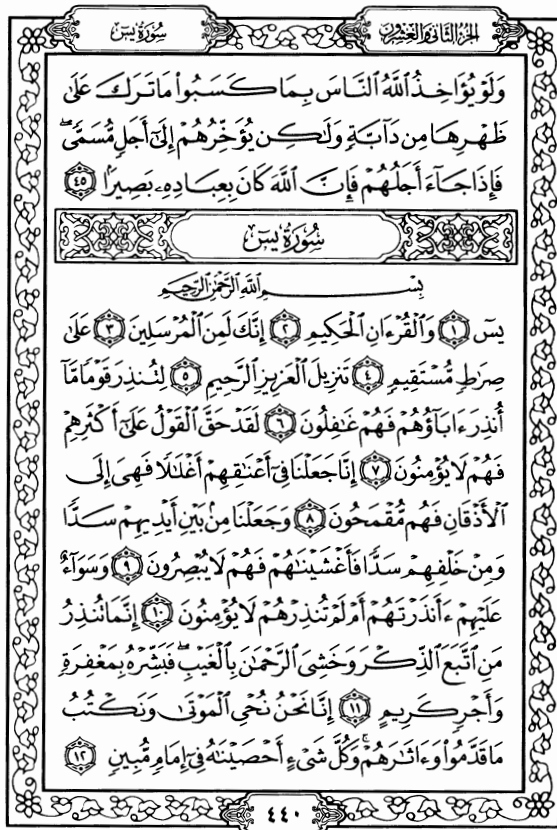 الجزء الثاني والعشرون
سُورَةُ يسٓ
وَلَوْ يُؤَاخِذُ ٱللَّهُ ٱلنَّاسَ بِمَا كَسَبُوا۟ مَا تَرَكَ عَلَىٰ
ظَهْرِهَا مِن دَآبَّةٍ وَلَٰكِن يُؤَخِّرُهُمْ إِلَىٰٓ أَجَلٍ مُّسَمًّى ۖ
فَإِذَا جَآءَ أَجَلُهُمْ فَإِنَّ ٱللَّهَ كَانَ بِعِبَادِهِۦ بَصِيرًۢا ٤٥
سُورَةُ يسٓ
بِسْمِ ٱللَّهِ ٱلرَّحْمَٰنِ ٱلرَّحِيمِ
يسٓ ١ وَٱلْقُرْءَانِ ٱلْحَكِيمِ ٢ إِنَّكَ لَمِنَ ٱلْمُرْسَلِينَ ٣ عَلَىٰ
صِرَٰطٍ مُّسْتَقِيمٍ ٤ تَنزِيلَ ٱلْعَزِيزِ ٱلرَّحِيمِ ٥ لِتُنذِرَ قَوْمًا مَّآ
أُنذِرَ ءَابَآؤُهُمْ فَهُمْ غَٰفِلُونَ ٦ لَقَدْ حَقَّ ٱلْقَوْلُ عَلَىٰٓ أَكْثَرِهِمْ
فَهُمْ لَا يُؤْمِنُونَ ٧ إِنَّا جَعَلْنَا فِىٓ أَعْنَٰقِهِمْ أَغْلَٰلًا فَهِىَ إِلَى
ٱلْأَذْقَانِ فَهُم مُّقْمَحُونَ ٨ وَجَعَلْنَا مِنۢ بَيْنِ أَيْدِيهِمْ سَدًّا
وَمِنْ خَلْفِهِمْ سَدًّا فَأَغْشَيْنَٰهُمْ فَهُمْ لَا يُبْصِرُونَ ٩ وَسَوَآءٌ
عَلَيْهِمْ ءَأَنذَرْتَهُمْ أَمْ لَمْ تُنذِرْهُمْ لَا يُؤْمِنُونَ ١٠ إِنَّمَا تُنذِرُ
مَنِ ٱتَّبَعَ ٱلذِّكْرَ وَخَشِىَ ٱلرَّحْمَٰنَ بِٱلْغَيْبِ ۖ فَبَشِّرْهُ بِمَغْفِرَةٍ
وَأَجْرٍ كَرِيمٍ ١١ إِنَّا نَحْنُ نُحْىِ ٱلْمَوْتَىٰ وَنَكْتُبُ
مَا قَدَّمُوا۟ وَءَاثَٰرَهُمْ ۚ وَكُلَّ شَىْءٍ أَحْصَيْنَٰهُ فِىٓ إِمَامٍ مُّبِينٍ ١٢
٤٤٠